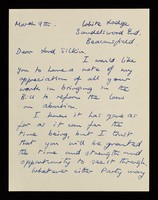 March 9th. White Lodge
Sandelswood End.
Beaconsfield
Dear Lord Silkin
I would like
you to have a note of my
appreciation of all your
work in bringing in the
Bill to reform the laws
on abortion.
I know it has gone as
far as it can for the
time being, but I trust
that you will be granted
the time and strength and
opportunity to see it through
Whatever either Party may